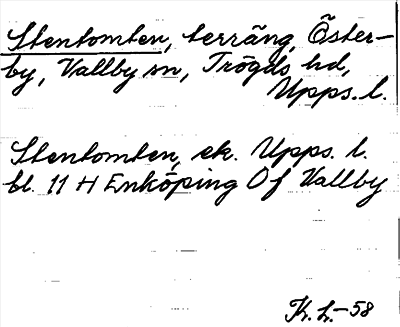 Stentomten, terräng, Öster-
by, Vallby sn, Trögds hd,
Upps. l.
Stentomten, ek. Upps. l.
bl. 11 H Enköping Of Vallby
Kr. L. -58